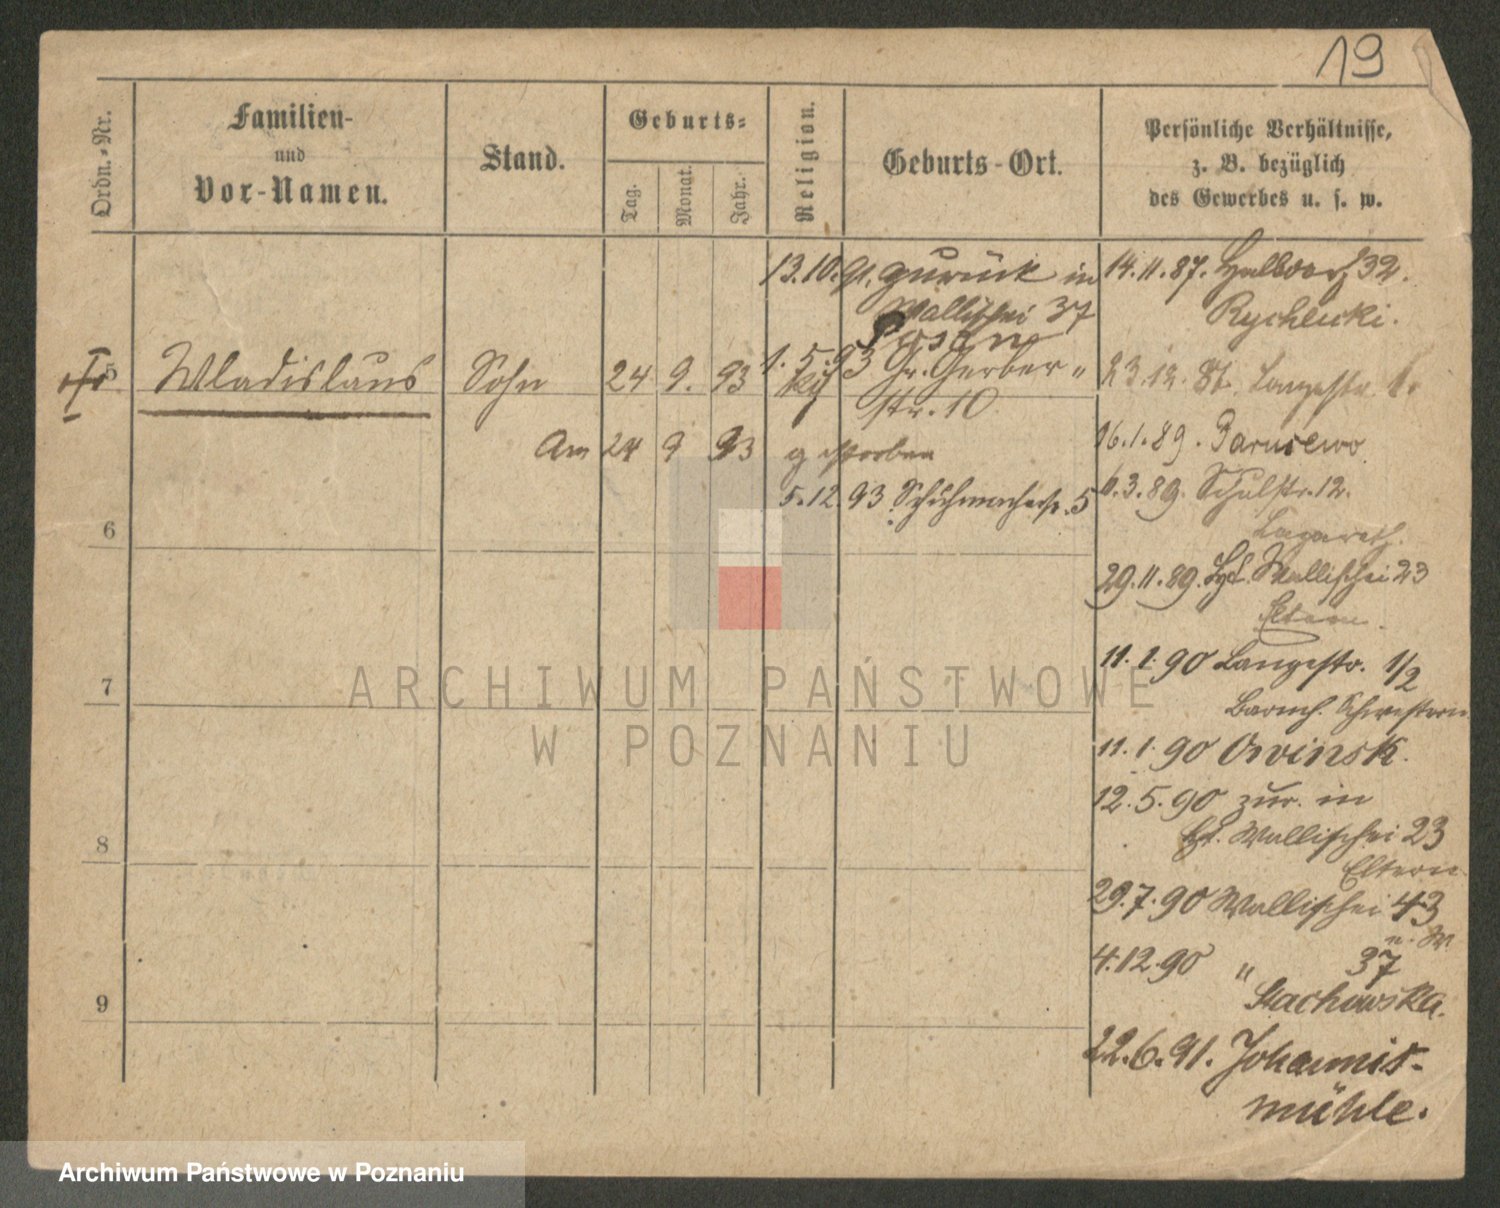 19
Ordn.-Nr.
Familien-
und
Vor-Namen.
Stand.
Geburts-
Tag.
Monat.
Jahr.
Religion.
Geburts-Ort.
Persönliche Verhältnisse,
z. B. bezüglich
des Gewerbes u. s. w.
13.10.91. zurück in
Wallischei 37
Posen
1.5.93 Gr. Gerber-
str. 10
5 Wladislaus Sohn 24 9. 93 kth
Am 24 9 93 gestorben
5.12.93 Schuhmacherstr. 5
6
7
8
9
14.11.87. Halbdorf 32.
Rychlicki.
23.12. 87. Langestr.
16.1.89. Parusewo
6.3.89. Schulstr. 12.
Lazareth.
29.11.89. Wallischei 23
Eltern.
11.1.90 Langestr. 1/2
Barmh. Schwestern
11.1.90 Owinsk.
12.5.90 zur. in
Wallischei 23
Eltern
29.7.90 Wallischei 43
4.12.90 " 37
Stachowska.
22.6.91. Johannis-
mühle.
ARCHIWUM PAŃSTWOWE
W POZNANIU
Archiwum Państwowe w Poznaniu